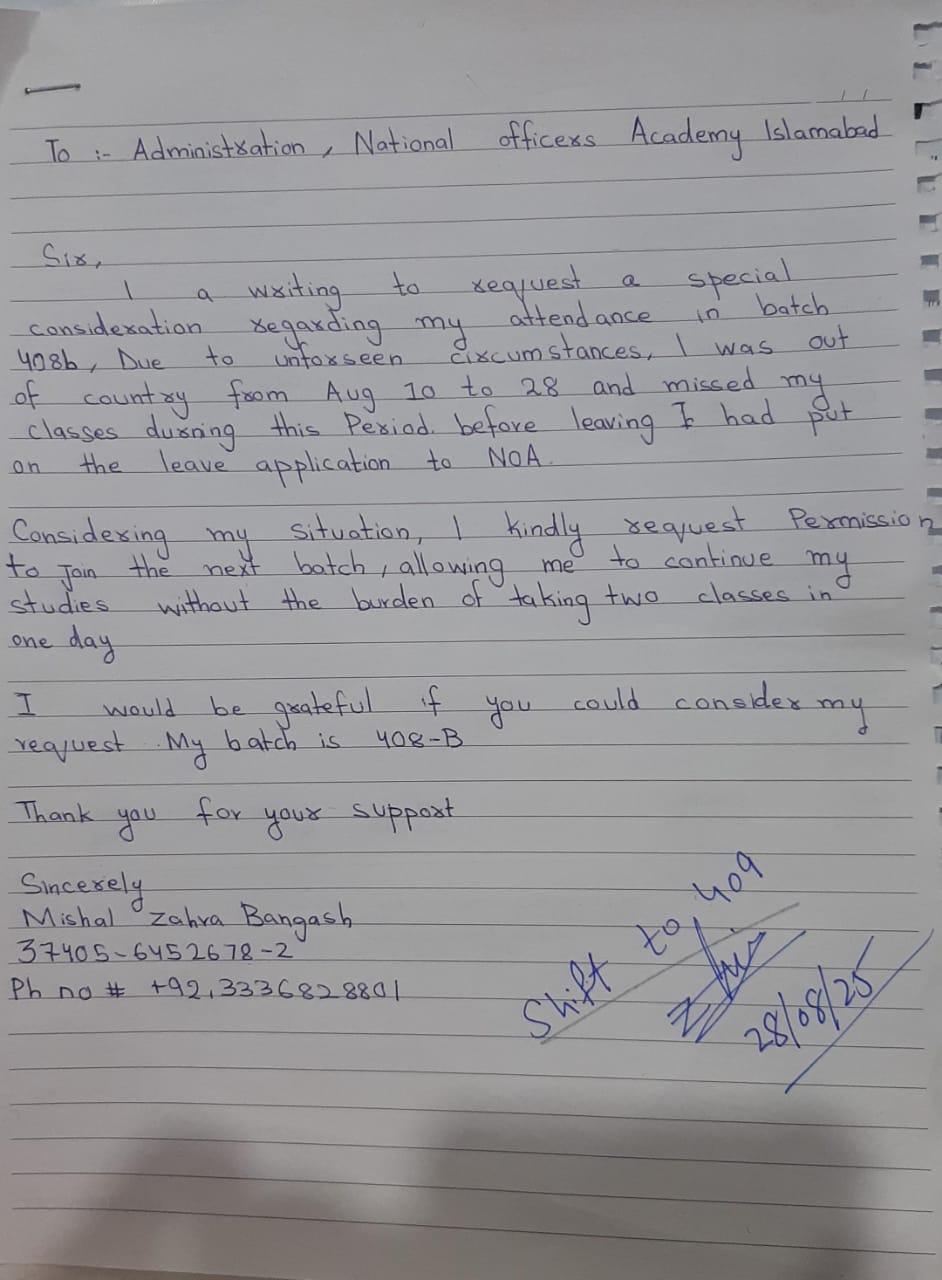 To :- Administration, National officers Academy Islamabad
Sir,
I a writing to request a special
consideration regarding my attendance in batch
408b, Due to unforseen circumstances, I was out
of country from Aug 10 to 28 and missed my
classes durning this Period. before leaving I had put
on the leave application to NOA.
Considering my situation, I kindly request Permission
to Join the next batch, allowing me to continue my
studies without the burden of taking two classes in
one day
I would be grateful if you could consider my
request. My batch is 408-B
Thank you for your support
Sincerely
Mishal Zahra Bangash
37405-6452678-2
Ph no # +92,3336828801
Shift to 409
28/08/25